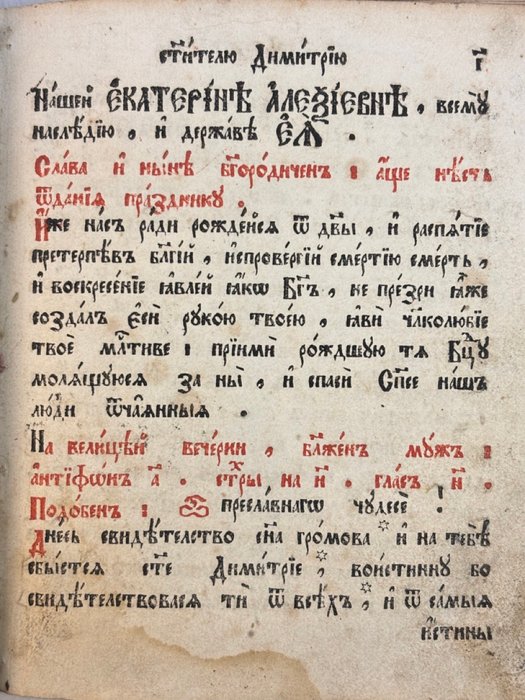 ст҃ителю Димитрїю г҃
Нашей ЕКАТЕРІНѢ АЛЕѮІЕВНѢ , всемꙋ
наслѣдїю , и державѣ ЕѦ .
Слава и нынѣ бг҃ородиченъ : аще нѣсть
ѿданїѧ празднику .
Иже насъ ради рождейсѧ ѿ дв҃ы , и распѧтїе
претерпѣвъ бл҃гїй , испровергїй смертїю смерть ,
и воскресенїе ꙗвлей ꙗкѡ бг҃ъ , не презри ꙗже
создалъ еси рукою твоею , ꙗви чл҃колюбїе
твое мл҃тиве : прїими рождшую тѧ бц҃у
молѧщуюсѧ за ны , и спаси Сп҃се нашъ
люди ѿчаѧнныѧ .
На велицѣй вечерни , бл҃женъ мужъ :
антїфѡнъ а҃ . стх҃ры на и҃ . гласъ и҃ .
Подобенъ : Ѽ преславнагѡ чудесе !
Днесь свидѣтелство сн҃а громова * и на тебѣ
сбыстсѧ ст҃е Димитрїе , * воистинну бо
свидѣтелствовасѧ ти ѿ всѣхъ , * и ѿ самыѧ
истины